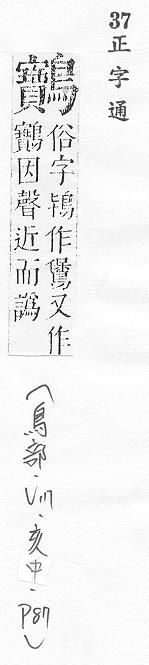 37 正字通
俗字鴇作又作
因聲近而譌
(鳥部·VII·亥中·P87)